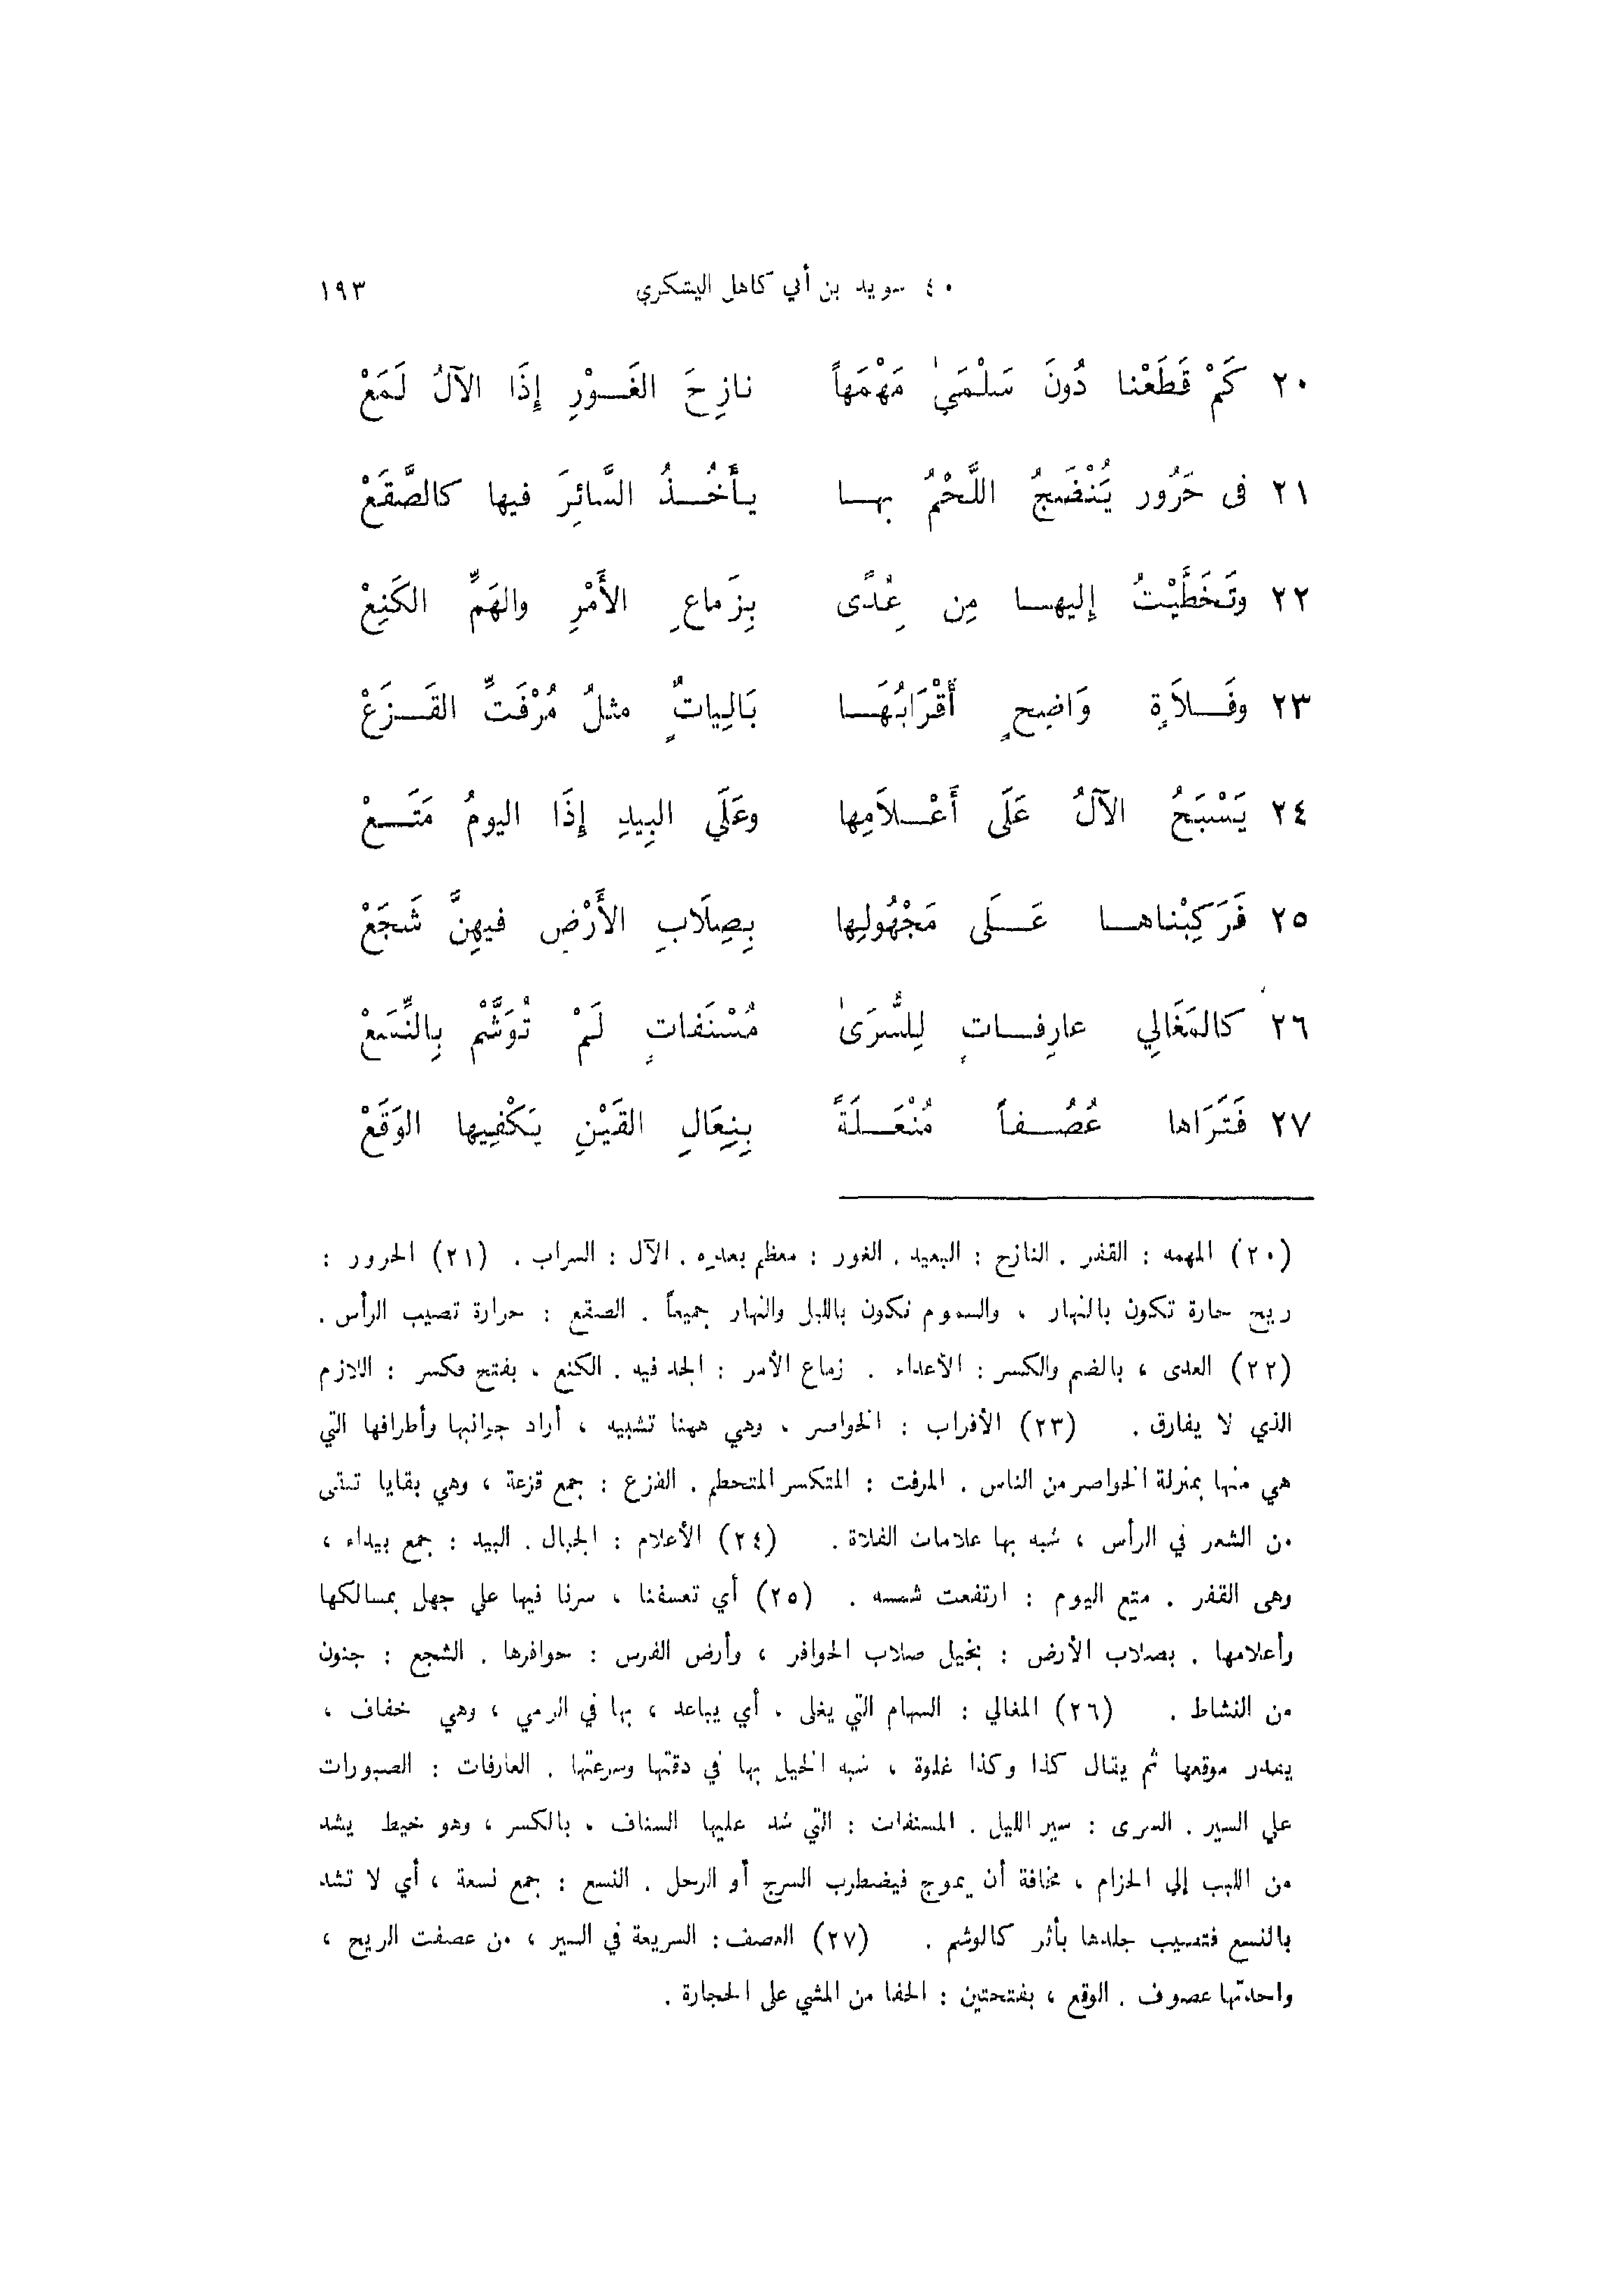 ٤٠ سويد بن أبي كاهل اليشكري ١٩٣
٢٠ كَمْ قَطَعْنا دُونَ سَلْمَىٰ مَهْمَهاً نازِحَ الغَوْرِ إِذَا الآلُ لَمَعْ
٢١ فى حَرُور يُنْضَجُ اللَّحْمُ بها يأْخُذُ السَّائِرَ فيها كالصَّقَعْ
٢٢ وتَخَطَّيْتُ إليها مِن عُِدًى بِزَماعِ الأَمْرِ والهَمِّ الكَنِعْ
٢٣ وفَلاَةٍ وَاضِحٍ أَقْرَابُهَا بَالِياتٌٍ مثلُ مُرْفَتِّ القَزَعْ
٢٤ يَسْبَحُ الآلُ عَلَى أَعْلاَمِها وعَلَى البِيدِ إِذَا اليومُ مَتَعْ
٢٥ فَرَكِبْناها عَلَى مَجْهُولِها بِصِلَابِ الأَرْضِ فيهِنَّ شَجَعْ
٢٦ كالمَغَالِي عارِفاتٍ لِلسُّرَىٰ مُسْنَفاتٍ لَمْ تُوَشَّمْ بِالنِّسَعْ
٢٧ فَتَرَاها عُصُفاً مُنْعَلَةً بِنِعَالِ القَيْنِ يَكْفِيها الوَقَعْ
(٢٠) المهمه : القفر . النازح : البعيد . الغور : معظم بعده . الآل : السراب . (٢١) الحرور :
ريح حارة تكون بالنهار ، والسموم تكون بالليل والنهار جميعاً . الصقع : حرارة تصيب الرأس .
(٢٢) العدى ، بالضم والكسر : الأعداء . زماع الأمر : الجد فيه . الكنع ، بفتح فكسر : اللازم
الذي لا يفارق . (٢٣) الأقراب : الخواصر ، وهي ههنا تشبيه ، أراد جوانبها وأطرافها التي
هي منها بمنزلة الخواصر من الناس . المرفت : المتكسر المتحطم . القزع : جمع قزعة ، وهي بقايا تبقى
من الشعر في الرأس ، شبه بها علامات الفلاة . (٢٤) الأعلام : الجبال . البيد : جمع بيداء ،
وهى القفر . متع اليوم : ارتفعت شمسه . (٢٥) أي تعسفنا ، سرنا فيها على جهل بمسالكها
وأعلامها . بصلاب الأرض : بخيل صلاب الحوافر ، وأرض الفرس : حوافرها . الشجع : جنون
من النشاط . (٢٦) المغالي : السهام التي يغلى ، أي يباعد ، بها في الرمي ، وهي خفاف ،
يقدر موقعها ثم يقال كذا وكذا غلوة ، شبه الخيل بها في دقتها وسرعتها . العارفات : الصبورات
على السير . السرى : سير الليل . المسنفات : التي شد عليها السناف ، بالكسر ، وهو خيط يشد
من اللبب إلى الحزام ، مخافة أن يموج فيضطرب السرج أو الرحل . النسع : جمع نسعة ، أي لا تشد
بالنسع فتصيب جلدها بأثر كالوشم . (٢٧) العصف : السريعة في السير ، من عصفت الريح ،
واحدتها عصوف . الوقع ، بفتحتين : الحفا من المشي على الحجارة .